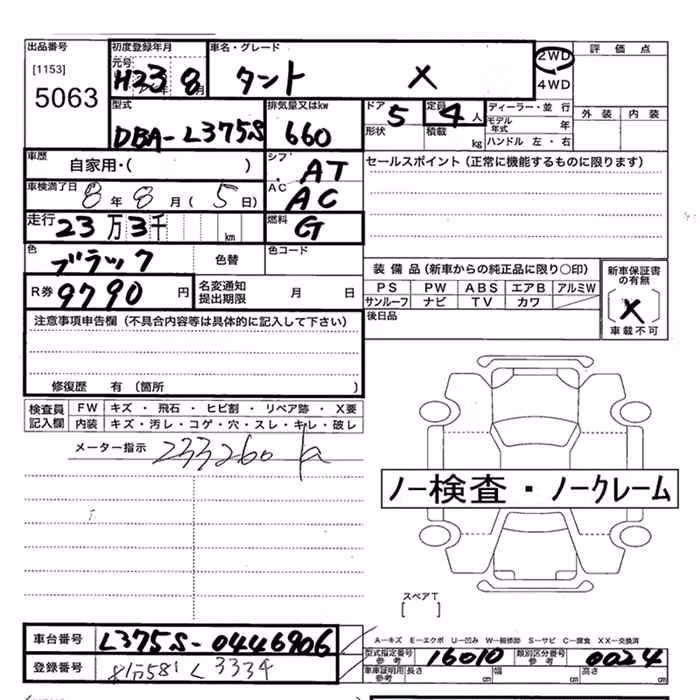 出品番号 初度登録年月 車名・グレード 評価点
[1153] 元号 2WD
5063 H23 8 タント X 4WD
型式 排気量又はkw ドア 定員 ディーラー・並行 外装 内装
DBA-L375S 660 5 4人 モデル年式 年
形状 積載 kg ハンドル 左・右
車歴 自家用・( ) シフ AT セールスポイント(正常に機能するものに限ります)
車検満了日 8年8月(5日) AC AC
走行 23万3千 km 燃料 G
色 ブラック 色替 色コード
装備品(新車からの純正品に限り○印) 新車保証書の有無
R券 9790円 名変通知提出期限 月 日 PS PW ABS エアB アルミW
サンルーフ ナビ TV カワ X
注意事項申告欄(不具合内容等は具体的に記入して下さい) 後日品 車載不可
修復歴 有(箇所 )
検査員記入欄 FW キズ・飛石・ヒビ割・リペア跡・X要
内装 キズ・汚レ・コゲ・穴・スレ・キレ・破レ
メーター指示 233260
ノー検査・ノークレーム
スペアT
[ ]
車台番号 L375S-0446906 A-キズ E-エクボ U-凹み W-補修跡 S-サビ C-腐食 XX-交換済
登録番号 581 L 3334 型式指定番号 参考 16010 類別区分番号 参考 0024
車庫証明用参考 長さ cm 幅 cm 高さ cm